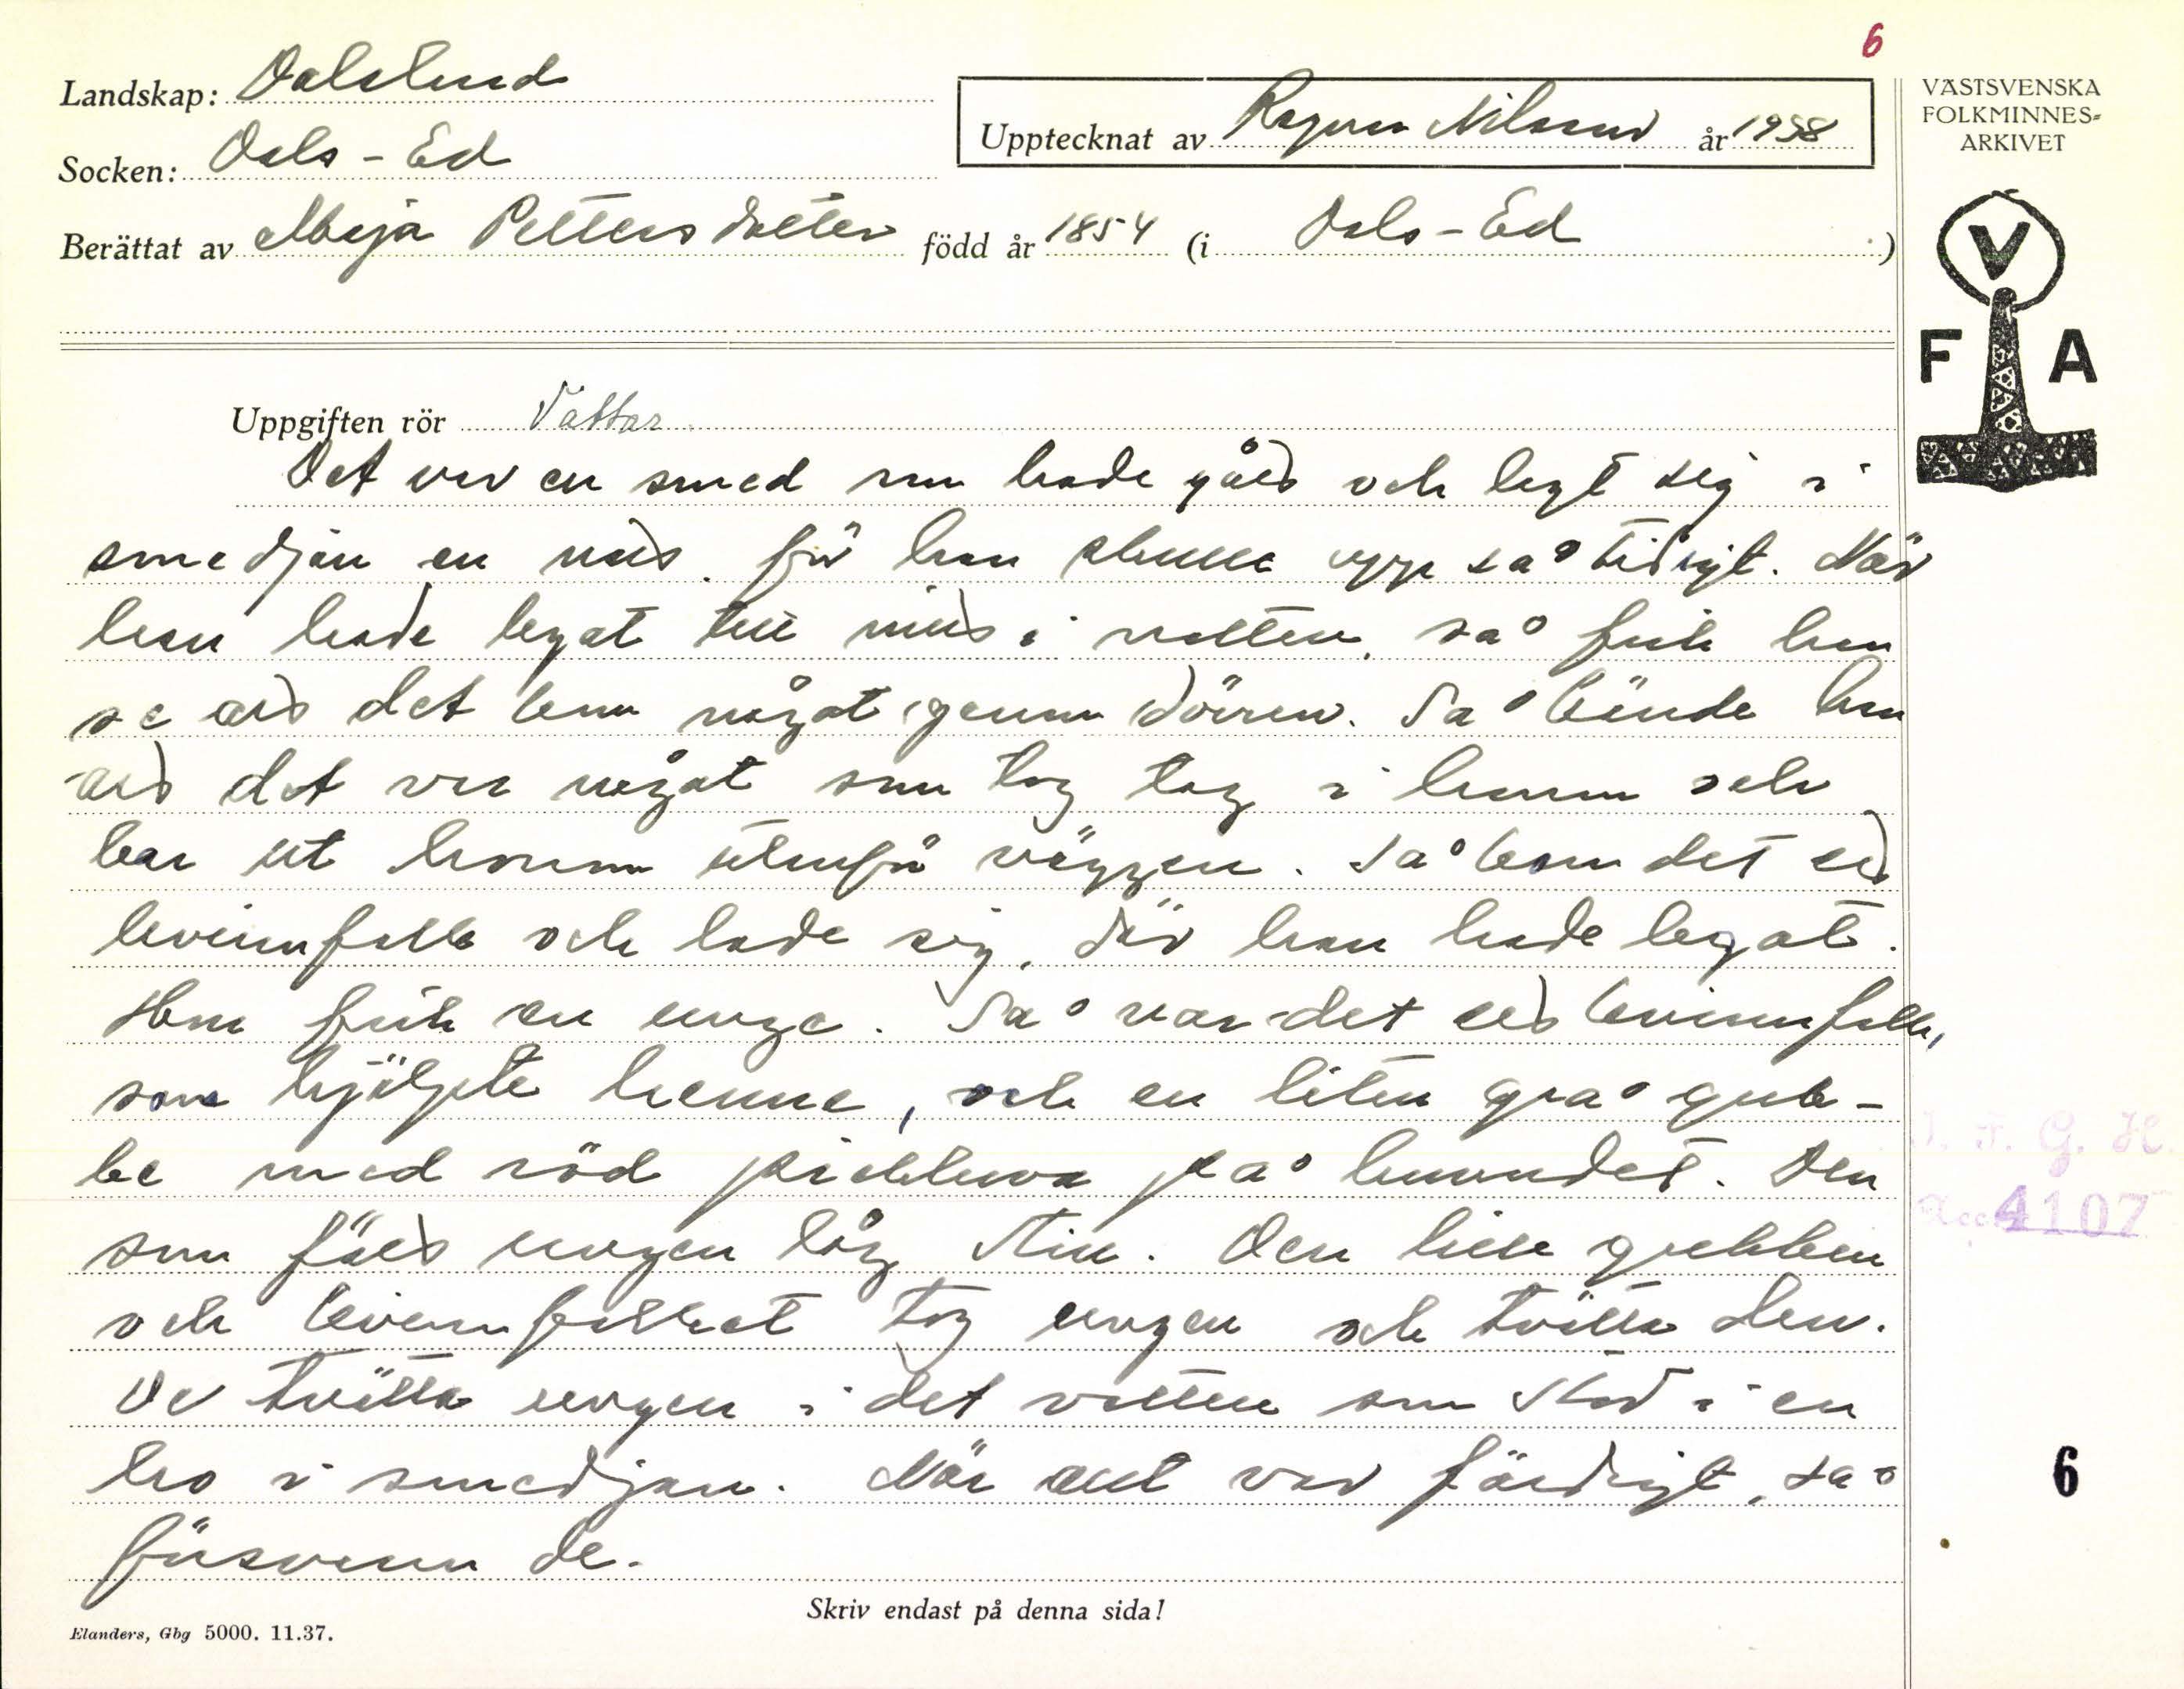 6
Landskap: Dalsland
Upptecknat av Ragnar Nilsson år 1938
VÄSTSVENSKA
FOLKMINNES-
ARKIVET
Socken: Dals-Ed
Berättat av Maja Pettersdotter född år 1854 (i Dals-Ed )
V
F A
Uppgiften rör Vättar
Det var en smed som hade gått och lagt sig i
smedjan en natt, för han skulle upp så tidigt. När
han hade legat till mitt i natten, så fick han
se att det kom något genom dörren. Så kände han
att det var något som tog tag i honom och
bar ut honom utanför väggen. Så kom det ett
kvinnfolk och lade sig, där han hade legat.
Hon fick en unge. Så var det ett kvinnfolk,
som hjälpte henne, och en liten grå gub-
be med röd pickluva på huvudet. Den
som fått ungen låg still. Den lille gubben
och kvinnfolket tog ungen och tvätta den.
De tvätta ungen i det vatten som stod i en
ho i smedjan. När allt var färdigt, så
försvann de.
I. F. G. H.
Acc. 4107
6
Skriv endast på denna sida!
Elanders, Gbg 5000. 11.37.